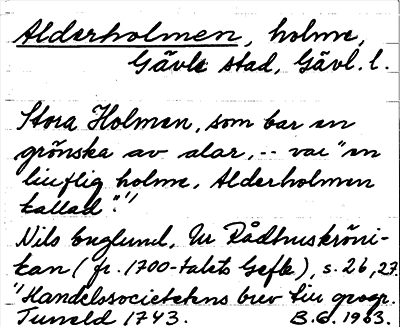 Alderholmen, holme,
Gävle stad, Gävl. l.
Stora Holmen, som bar en
grönska av alar, -- var "en
liuflig holme, Alderholmen
kallad".¹⁾
Nils Englund, Ur Rådhuskröni-
kan (fr. 1700-talets Gefle), s. 26, 27.
¹⁾Handelssocietetens brev till geogr.
Tuneld 1743. B.G. 1963.